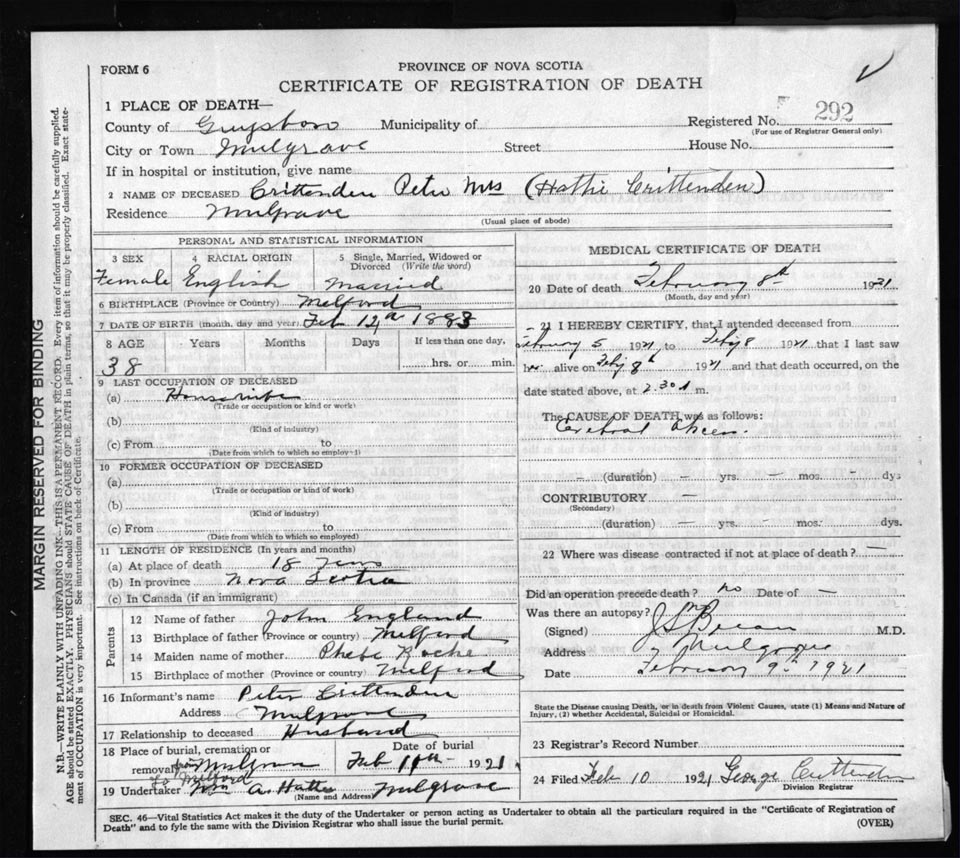 FORM 6
PROVINCE OF NOVA SCOTIA
CERTIFICATE OF REGISTRATION OF DEATH
1 PLACE OF DEATH—
County of Guysboro Municipality of Registered No. 292
(For use of Registrar General only)
City or Town Mulgrave Street House No.
If in hospital or institution, give name
2 NAME OF DECEASED Crittenden Peter Mrs (Hattie Crittenden)
Residence Mulgrave
(Usual place of abode)
PERSONAL AND STATISTICAL INFORMATION
3 SEX 4 RACIAL ORIGIN 5 Single, Married, Widowed or Divorced (Write the word)
Female English Married
6 BIRTHPLACE (Province or Country) Melford
7 DATE OF BIRTH (month, day and year) Feb 12th 1883
8 AGE Years Months Days If less than one day,
38 hrs. or min.
9 LAST OCCUPATION OF DECEASED
(a) Housewife
(Trade or occupation or kind or work)
(b)
(Kind of industry)
(c) From to
(Date from which to which so employed)
10 FORMER OCCUPATION OF DECEASED
(a)
(Trade or occupation or kind of work)
(b)
(Kind of industry)
(c) From to
(Date from which to which so employed)
11 LENGTH OF RESIDENCE (In years and months)
(a) At place of death 18 years
(b) In province Nova Scotia
(c) In Canada (if an immigrant)
Parents
12 Name of father John England
13 Birthplace of father (Province or country) Melford
14 Maiden name of mother Phebe Roche
15 Birthplace of mother (Province or country) Melford
16 Informant's name Peter Crittenden
Address Mulgrave
17 Relationship to deceased Husband
18 Place of burial, cremation or Date of burial
removal from Mulgrave Feb 1921
to Melford
19 Undertaker Wm A. Mulgrave
(Name and Address)
MEDICAL CERTIFICATE OF DEATH
20 Date of death February 8th 1921
(Month, day and year)
21 I HEREBY CERTIFY, that I attended deceased from
February 5 1921 to Feby 8 1921 that I last saw
her alive on Feby 8th 1921 and that death occurred, on the
date stated above, at 2.30 A m.
The CAUSE OF DEATH was as follows:
Cerebral
(duration) — yrs. — mos. — dys
CONTRIBUTORY —
(Secondary)
(duration) — yrs. — mos. — dys.
22 Where was disease contracted if not at place of death? —
Did an operation precede death? no Date of —
Was there an autopsy? no
(Signed) M.D.
Address Mulgrave
Date February 9th 1921
State the Disease causing Death, or in death from Violent Causes, state (1) Means and Nature of
Injury, (2) whether Accidental, Suicidal or Homicidal.
23 Registrar's Record Number
24 Filed Feb 10 1921 George Crittenden
Division Registrar
SEC. 46—Vital Statistics Act makes it the duty of the Undertaker or person acting as Undertaker to obtain all the particulars required in the "Certificate of Registration of
Death" and to fyle the same with the Division Registrar who shall issue the burial permit.
(OVER)
MARGIN RESERVED FOR BINDING
N.B.—WRITE PLAINLY WITH UNFADING INK—THIS IS A PERMANENT RECORD. Every item of information should be carefully supplied.
AGE should be stated EXACTLY. PHYSICIANS should STATE CAUSE OF DEATH in plain terms, so that it may be properly classified. Exact state-
ment of OCCUPATION is very important. See instructions on back of Certificate.